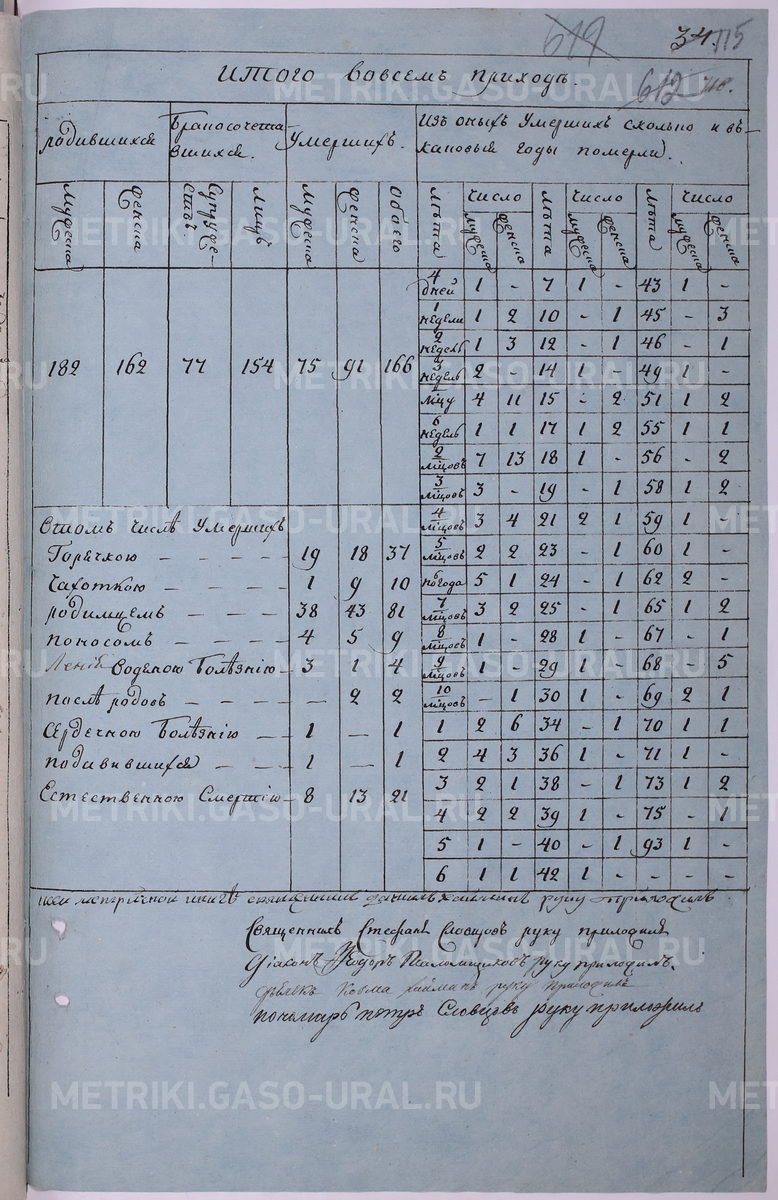 619 34. 115
итого вовсемъ приходѣ 612
родившихся Бракосочета Умершихъ. Изъ оныхъ Умершихъ сколько и въ
вшихся. каковыя годы померли.
Мужеска Женска Супруже- Лицъ Мужеска Женска Обоего Лѣта Число Лѣта Число Лѣта Число
ствъ мужеска женска мужеска женска мужеска женска
4 дней 1 - 7 1 - 43 1 -
1 недели 1 2 10 - 1 45 - 3
2 недель 1 3 12 - 1 46 - 1
182 162 77 154 75 91 166 3 недель 2 - 14 1 - 49 1 -
мцу 4 11 15 - 2 51 1 2
6 недель 1 1 17 1 2 55 1 1
2 мцовъ 7 13 18 1 - 56 - 2
3 мцовъ 3 - 19 - 1 58 1 2
Втомъ числѣ Умершихъ 4 мцовъ 3 4 21 2 1 59 1 -
Горячкою 19 18 37 5 мцовъ 2 2 23 - 1 60 1 -
Чахоткою 1 9 10 погода 5 1 24 - 1 62 2 -
родимцемъ 38 43 81 7 мцовъ 3 2 25 - 1 65 1 2
поносомъ 4 5 9 8 мцовъ 1 - 28 1 - 67 - 1
Воденою Болѣзнію 3 1 4 9 мцовъ 1 - 29 1 - 68 - 5
послѣ родовъ - 2 2 10 мцовъ - 1 30 1 - 69 2 1
Сердечною Болѣзнію 1 - 1 1 2 6 34 - 1 70 1 1
подавившихся 1 - 1 2 4 3 36 1 - 71 1 -
Естественною Смертію 8 13 21 3 2 1 38 - 1 73 1 2
4 2 2 39 1 - 75 - 1
5 1 - 40 - 1 93 1 -
6 1 1 42 1 - - - -
руку приложилъ
Священникъ Стефанъ Словцовъ руку приложилъ
Діаконъ Ѳедоръ руку приложилъ.
Козма руку приложилъ
пономарь петръ Словцовъ руку приложилъ
METRIKI.GASO-URAL.RU